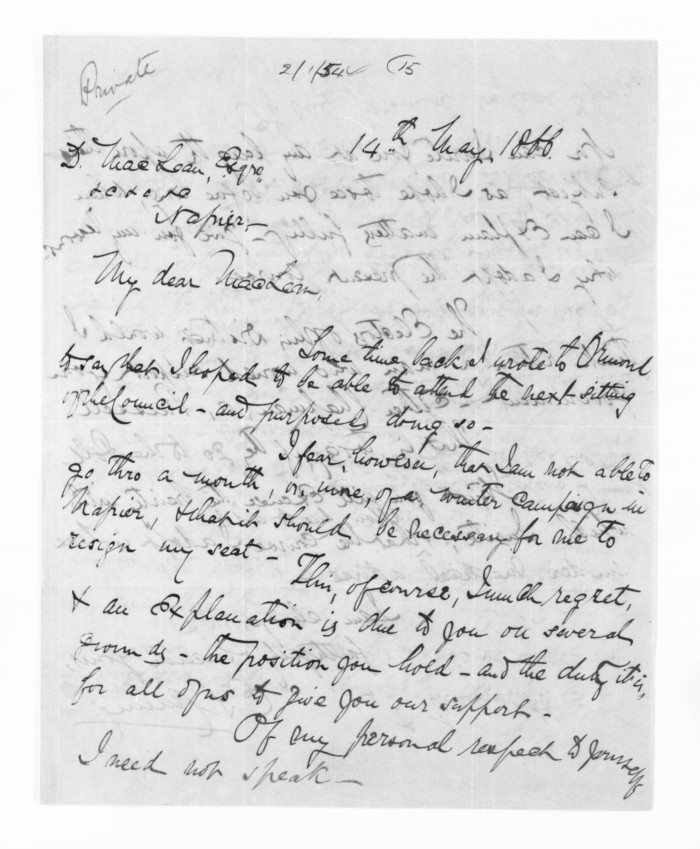 Private
2/1/54 15
14th May, 1866.
D. MacLean, Esqre,
&c &c &c
Napier,—
My dear MacLean,
Some time back I wrote to Ormond
to say that I hoped to be able to attend the next sitting
of the Council — and purposed doing so —
I fear, however, that I am not able to
go thro a month, or, more, of a winter campaign in
Napier, & that it should be necessary for me to
resign my seat —
This, of course, I much regret,
& an explanation is due to you on several
grounds — the position you hold — and the duty it is,
for all of us to give you our support —
Of my personal respect to yourself
I need not speak —